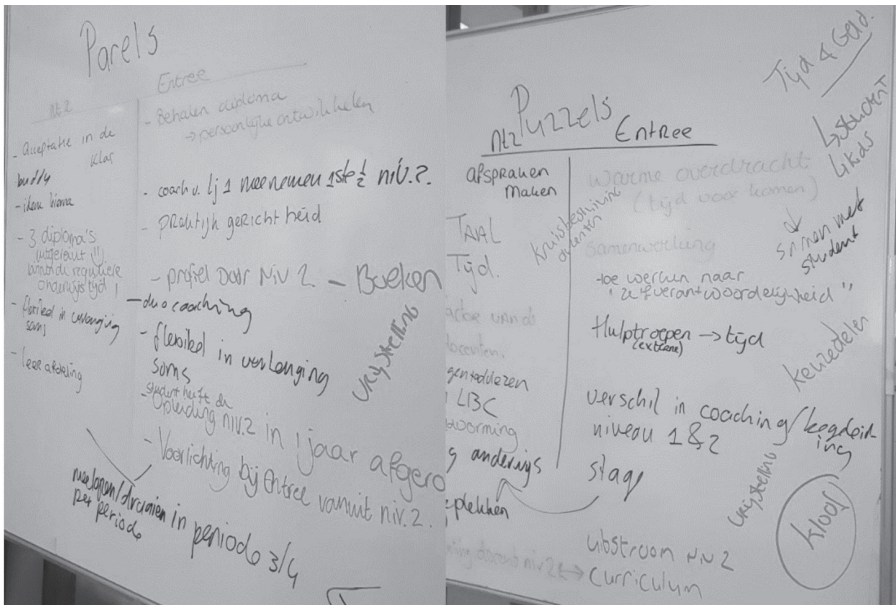 Parels
Nt2
- Acceptatie in de klas
buddy
- 3 diploma's
onderwijstijd!
- flexibel in verlenging
soms
- leesafdeling
Entree
- Behalen diploma
→ persoonlijke ontwikkelen
- coach v. lj 1 meenemen 1ste ½ niv. 2.
- praktijk gerichtheid
- profiel Door Niv 2. - Boeken
- duo coaching
- flexibel in verlenging
soms
- student heeft de
opleiding niv. 2 in 1 jaar afgero
- Voorlichting bij Entree vanuit niv. 2.
Vrijstelling
meelopen/draaien in periode 3/4
per periode
Puzzels
Nt2
afspraken
maken
TAAL
Tijd.
docenten.
LBC
g anderijs
eplekken
Entree
Warme overdracht
(tijd voor komen)
Kruisbestuiving
docenten
Samenwerking
toe werken naar
"zelfverantwoordelijkheid"
Hulptroepen → tijd
(externe)
verschil in coaching/begeleid
ing
niveau 1 & 2
stage
uitstroom Niv 2
curriculum
Tijd & Geld.
↳ student
↓
samen met
student
keuzedelen
Vrijstelling
kloof